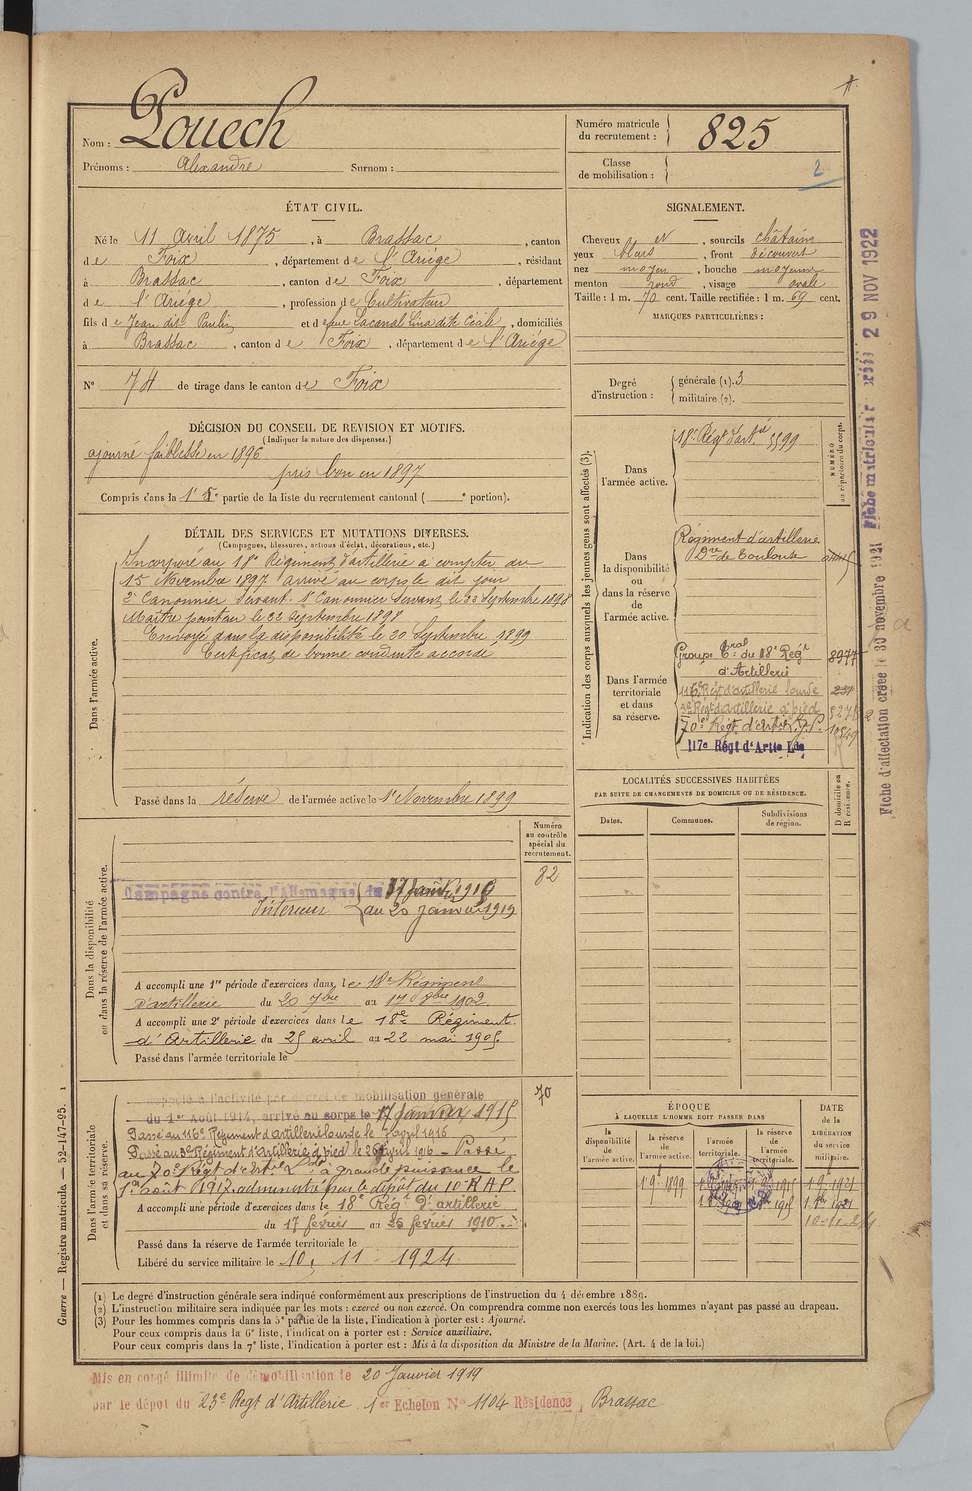 Nom : Pouech
Prénoms : Alexandre Surnom :
Numéro matricule du recrutement : 825
Classe de mobilisation : 2
ÉTAT CIVIL.
Né le 11 Avril 1875, à Brassac, canton
de Foix, département de l'Ariège, résidant
à Brassac, canton de Foix, département
de l'Ariège, profession de Cultivateur
fils de Jean dit Paulin et de feue Lacanal Lina dite Cécile, domiciliés
à Brassac, canton de Foix, département de l'Ariège
N° 74 de tirage dans le canton de Foix
SIGNALEMENT.
Cheveux et, sourcils châtains
yeux bleus, front découvert
nez moyen, bouche moyenne
menton rond, visage ovale
Taille : 1 m. 70 cent. Taille rectifiée : 1 m. 69 cent.
MARQUES PARTICULIÈRES :
Degré d'instruction : générale (1). 3
militaire (2).
DÉCISION DU CONSEIL DE REVISION ET MOTIFS.
(Indiquer la nature des dispenses.)
ajourné faiblesse en 1896
pris bon en 1897
Compris dans la 1e partie de la liste du recrutement cantonal ( e portion).
DÉTAIL DES SERVICES ET MUTATIONS DIVERSES.
(Campagnes, blessures, actions d'éclat, décorations, etc.)
Dans l'armée active.
Incorporé au 18e Régiment d'artillerie à compter du
15 Novembre 1897 arrivé au corps le dit jour
2e Canonnier Servant. 1er Canonnier Servant le 22 Septembre 1898
Maître pointeur le 22 Septembre 1898
Envoyé dans la disponibilité le 20 Septembre 1899
Certificat de bonne conduite accordé
Passé dans la réserve de l'armée active le 1er Novembre 1899
Indication des corps auxquels les jeunes gens sont affectés (3).
NUMÉRO au répertoire du corps.
Dans l'armée active.
18e Régt d'artie 5599
Dans la disponibilité ou dans la réserve de l'armée active.
Régiment d'artillerie
Dans l'armée territoriale et dans sa réserve.
Groupe Tral du 18e Régt d'Artillerie 8977
116e Régt d'artillerie lourde
3e Régt d'artillerie à pied
70e Régt d'artie
117e Régt d'Artie Lde
LOCALITÉS SUCCESSIVES HABITÉES
PAR SUITE DE CHANGEMENTS DE DOMICILE OU DE RÉSIDENCE.
D domicile ou R résidence.
Dates. Communes. Subdivisions de région.
Dans la disponibilité ou dans la réserve de l'armée active.
Numéro au contrôle spécial du recrutement.
82
Campagne contre l'Allemagne du 17 Janv.
Intérieur au 20 Janvier 1919
A accompli une 1re période d'exercices dans le 18e Régiment
d'artillerie du 20 7bre au 17 8bre 1902
A accompli une 2e période d'exercices dans le 18e Régiment
d'Artillerie du 25 avril au 22 mai 1905
Passé dans l'armée territoriale le
Dans l'armée territoriale et dans sa réserve.
70
Rappelé à l'activité par décret de mobilisation générale
du 1er Août 1914, arrivé au corps le 17 Janvier 1915
Passé au 116e Régiment d'artillerie lourde le 7 avril 1916
Passé au 3e Régiment d'Artillerie à pied le 26 Avril 1916 - Passé
au 70e Régt d'artie à grande puissance le
1er août 1917 administré par le dépôt du 10e R.A.P.
A accompli une période d'exercices dans le 18e Régt d'artillerie
du 17 février au 25 février 1910
Passé dans la réserve de l'armée territoriale le
Libéré du service militaire le 10. 11 - 1924.
ÉPOQUE
À LAQUELLE L'HOMME DOIT PASSER DANS
DATE DE LA LIBÉRATION du service militaire.
la disponibilité de l'armée active. la réserve de l'armée active. l'armée territoriale. la réserve de l'armée territoriale.
(1) Le degré d'instruction générale sera indiqué conformément aux prescriptions de l'instruction du 4 décembre 1889.
(2) L'instruction militaire sera indiquée par les mots : exercé ou non exercé. On comprendra comme non exercés tous les hommes n'ayant pas passé au drapeau.
(3) Pour les hommes compris dans la 5e partie de la liste, l'indication à porter est : Ajourné.
Pour ceux compris dans la 6e liste, l'indication à porter est : Service auxiliaire.
Pour ceux compris dans la 7e liste, l'indication à porter est : Mis à la disposition du Ministre de la Marine. (Art. 4 de la loi.)
Mis en congé illimité de démobilisation le 20 Janvier 1919
par le dépôt du 23e Regt d'Artillerie 1er Echelon N° 1104 Résidence, Brassac
Guerre — Registre matricule. — 52-147-95.
Fiche matriculaire créée 29 NOV 1922
Fiche d'affectation créée le 30 novembre 1921